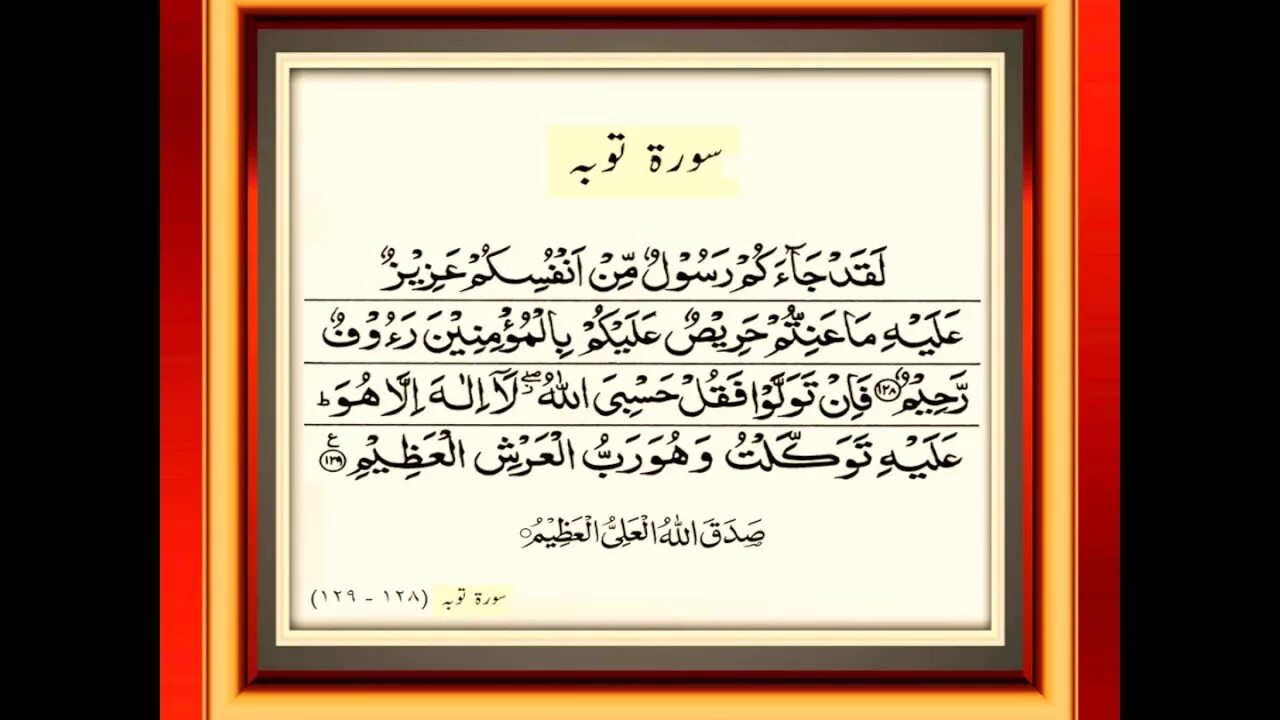 سورة توبہ
لَقَدْ جَآءَكُمْ رَسُوْلٌ مِّنْ اَنْفُسِكُمْ عَزِيْزٌ
عَلَيْهِ مَا عَنِتُّمْ حَرِيْصٌ عَلَيْكُمْ بِالْمُؤْمِنِيْنَ رَءُوْفٌ
رَّحِيْمٌ ﴿١٢٨﴾ فَاِنْ تَوَلَّوْا فَقُلْ حَسْبِىَ اللّٰهُ ۖ لَآ اِلٰهَ اِلَّا هُوَ ؕ
عَلَيْهِ تَوَكَّلْتُ وَهُوَ رَبُّ الْعَرْشِ الْعَظِيْمِ ﴿١٢٩﴾ ع
صَدَقَ اللّٰهُ الْعَلِىُّ الْعَظِيْمُ ○
سورة توبہ (١٢٨ - ١٢٩)